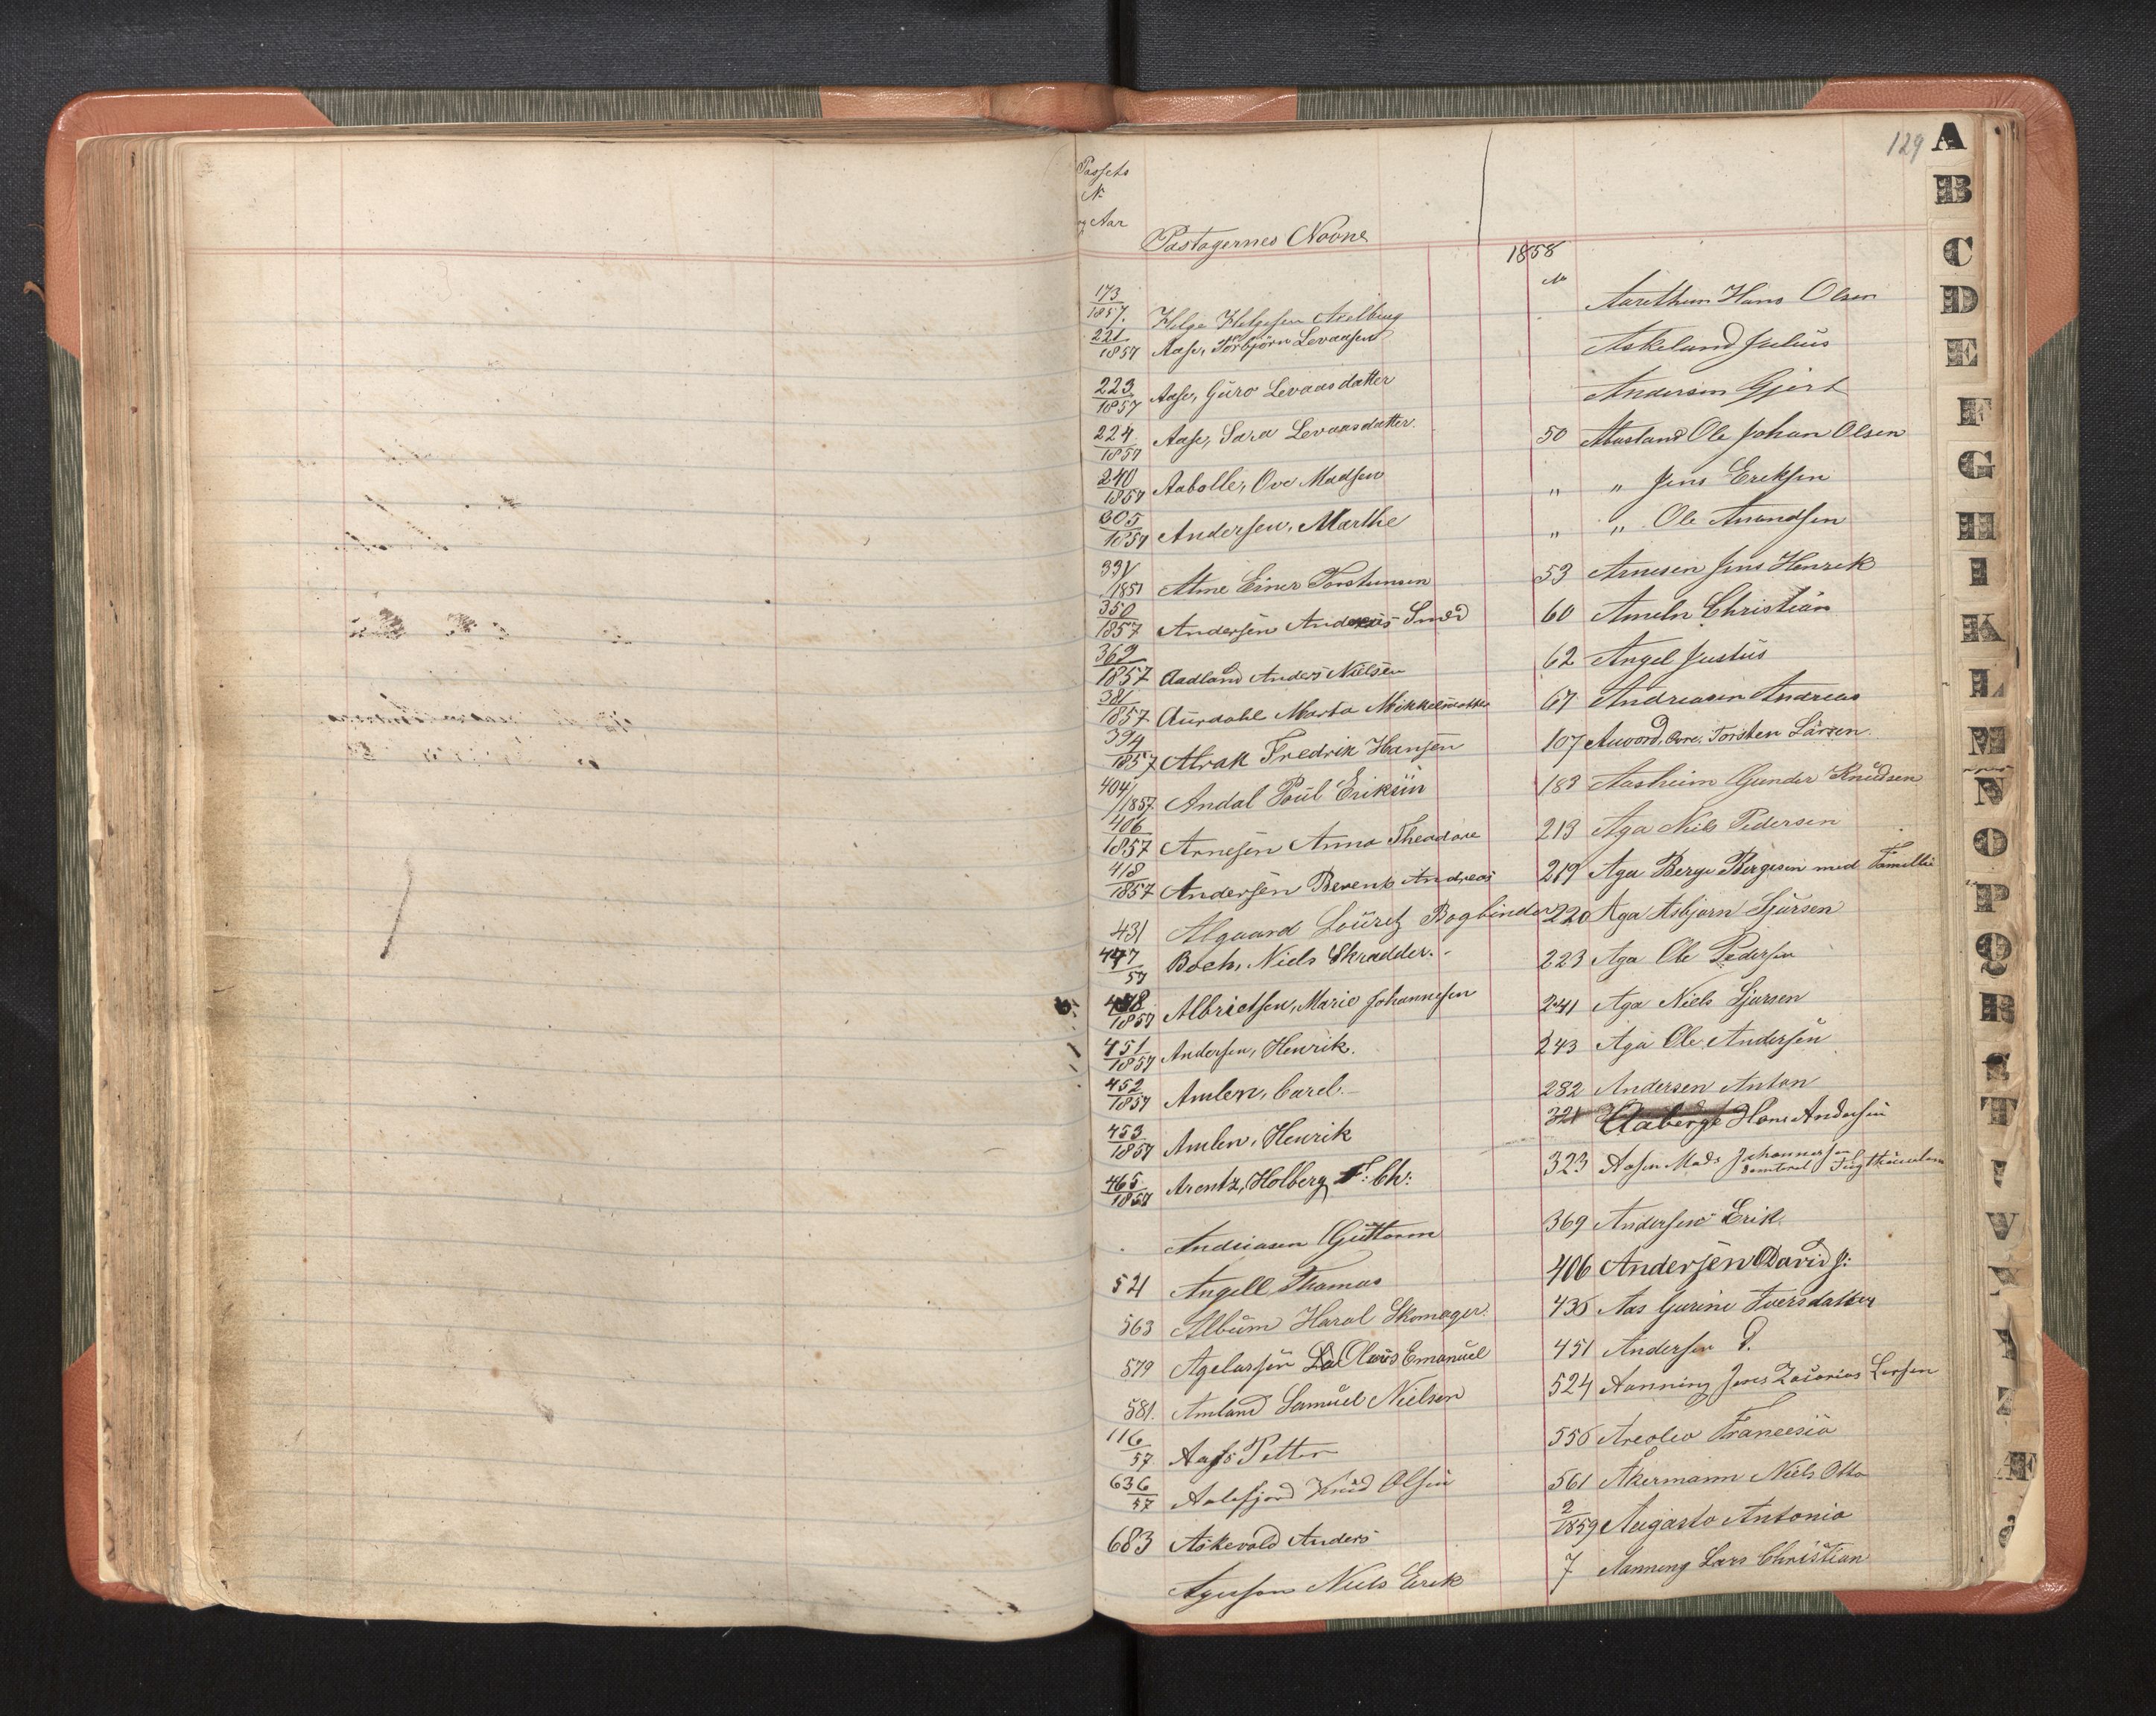 129
Passets
N.
og Aar
Pastagernes Navne
173/1857. Helge Helgesen Arelbug
221/1857 Aase, Torbjörn Levaasen
223/1857 Aase, Guro Levaasdatter
224/1857 Aase, Sara Levaasdatter.
240/1857 Aabolle, Ove Madsen
305/1857 Andersen, Marthe
331/1857 Alme Einer Torstensen
350/1857 Andersen Andreas Smed
369/1857 Aadland Anders Nielsen
381/1857 Aurdahl Marta Mikkelsdatter
394/1857 Alrak Fredrik Hansen
404/1857 Andal Poul Eriksen
406/1857 Arnesen Anna Theodore
418/1857 Andersen Berent Andreas
431 Algaard Louretz Bogbinder
447/57 Boch, Niels Skradder.
448/1857 Albrietsen, Marie Johannesen
451/1857 Andersen, Henrik.
452/1857 Amlen, Carel.
453/1857 Amlen, Henrik
465/1857 Arentz, Holberg F: Ch:
Andreasen Guttorm
521 Angell Thomas
563 Album Haral Skomager.
579 Agelarsen Olaus Emanuel
581. Amland Samuel Nielsen
116/57 Aass Petter
636/57 Aalesfjord Knud Olsen
683 Askevold Anders
Agersen Niels Erik
1858
No
Aarethun Hans Olsen
Askeland Julius
Andersen Gjert
50 Abusland Ole Johan Olsen
" " Jens Eriksen
" " Ole Anundsen
53 Arnesen Jens Henrik
60 Ameln Christian
62 Angel Justus
67 Andreasen Andreas
107 Auvord, Øvre, Torsten Larsen.
183 Aasheim Gunder Knudsen
213 Aga Nils Pedersen
219 Aga Berge Bergesen med Familie
220 Aga Asbjørn Sjursen
223 Aga Ole Pedersen
241 Aga Niels Sjursen
243 Aga Ole Andersen
282 Andersen Anton
321 Aaberge Hans Andersen
323 Aasen Mads Johannessen
369 Andersen Erik.
406 Andersen David J:
436 Aas Gurine Iversdatter
451 Andersen P.
524 Aanning Jens Zacarias Larsen
556 Areolea Francesia
561 Akermann Niels Otto
2/1859 Aeigasto Antonio
7 Aanning Lars Christian
A
B
C
D
E
F
G
H
I
K
L
M
N
O
P
Q
R
S
T
V
Y
Z
Æ